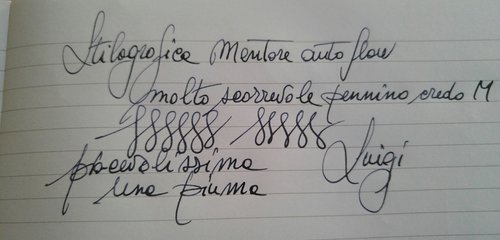 Stilografica Mentore auto flow
molto scorrevole pennino credo M
piacevolissima
una piuma
Luigi